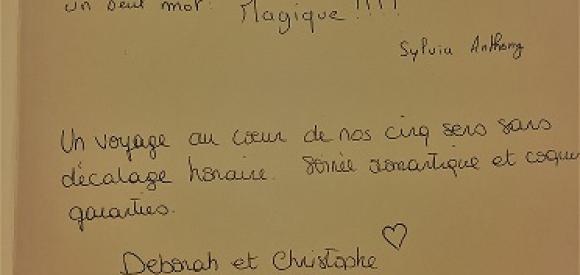 un seul mot: Magique !!!!
Sylvia Anthony
Un voyage au cœur de nos cinq sens sans
décalage horaire. Soirée romantique et coqui
garanties.
Deborah et Christophe